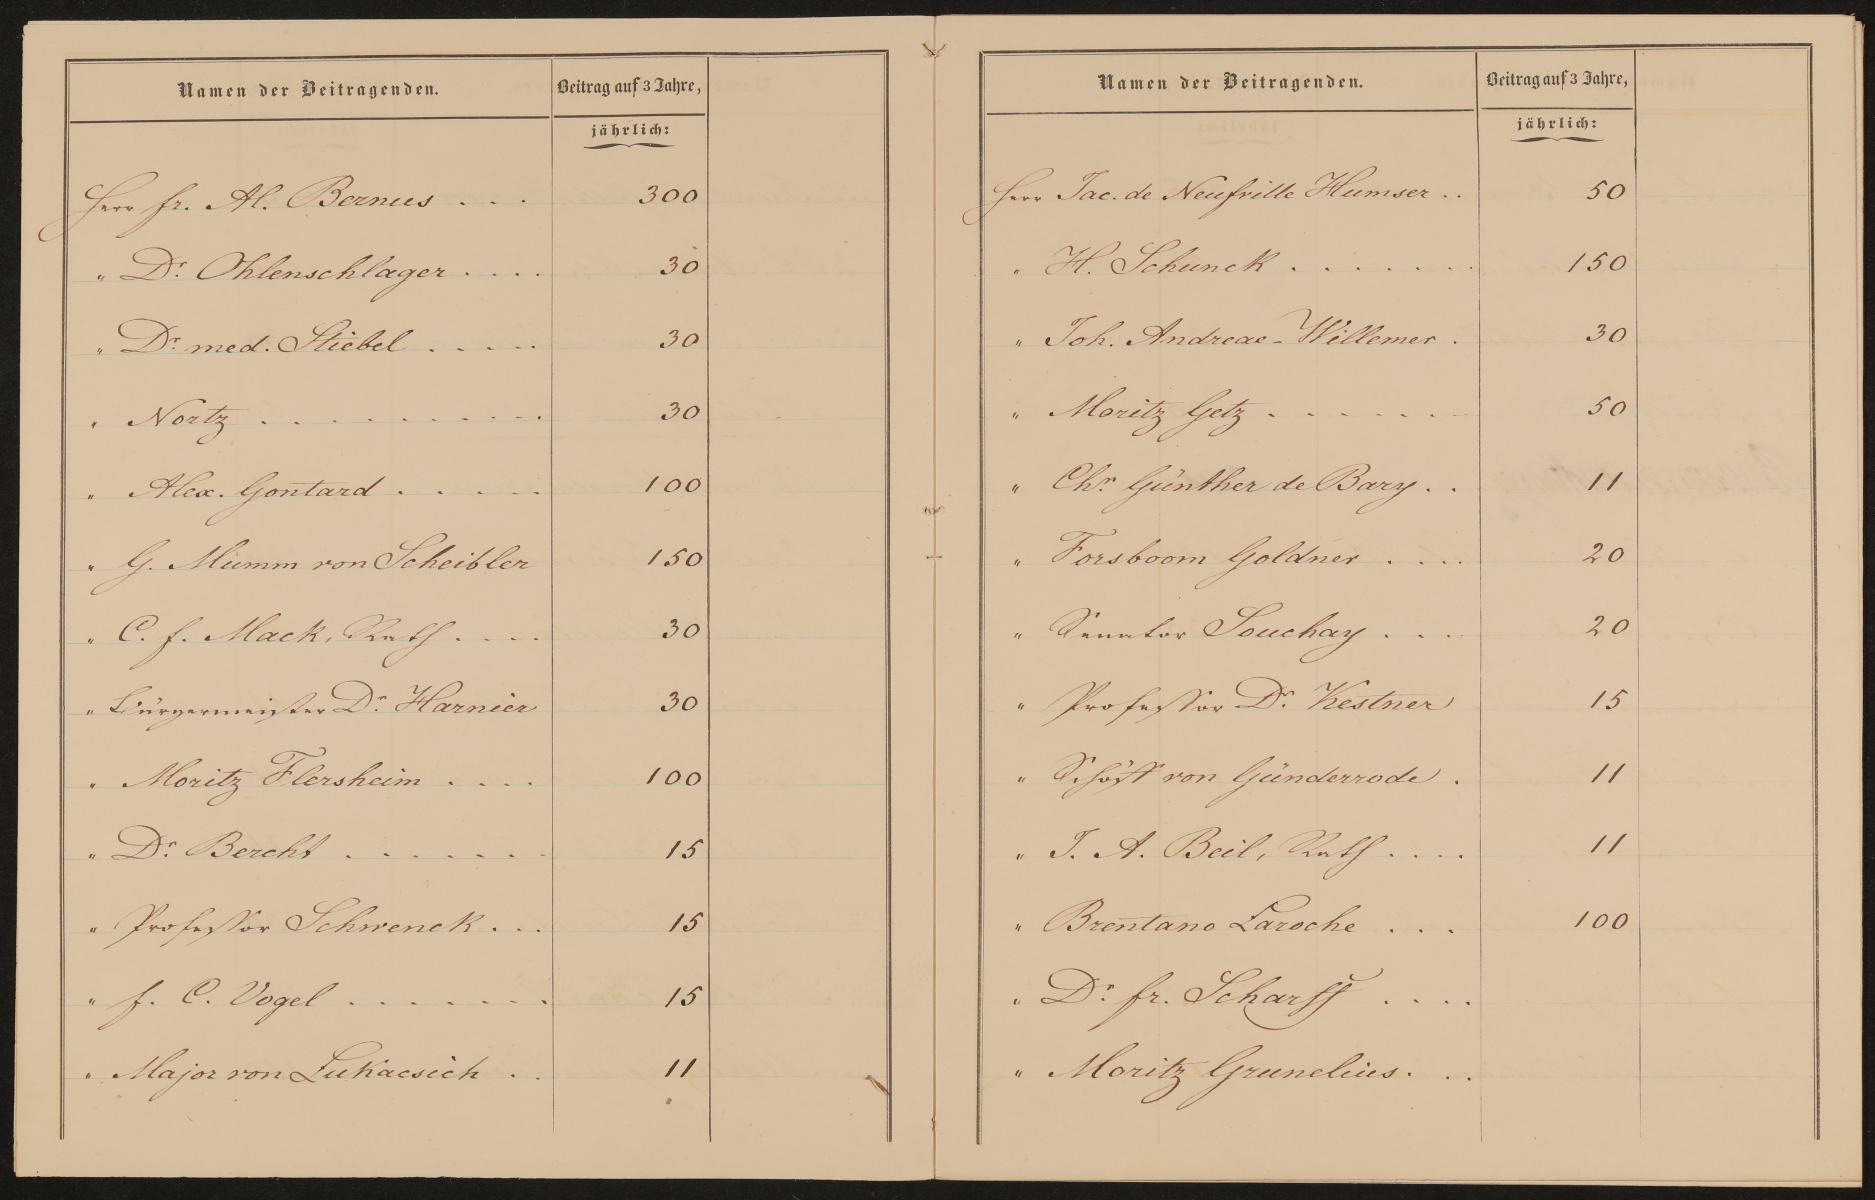 Namen der Beitragenden. Beitrag auf 3 Jahre,
jährlich:
Herr Fr. Al. Bernus . . . 300
" Dr. Ohlenschlager . . . . 30
" Dr. med. Stiebel . . . . . 30
" Nortz . . . . . . . . . . 30
" Alex. Gontard . . . . . 100
" G. Mumm von Scheibler 150
" C. F. Mack, Rath . . . . 30
" Bürgermeister Dr. Harnier 30
" Moritz Flersheim . . . . 100
" Dr. Bercht . . . . . . . 15
" Professor Schwenck . . . 15
" F. C. Vogel . . . . . . . 15
" Major von Lukacsich . . 11
Namen der Beitragenden. Beitrag auf 3 Jahre,
jährlich:
Herr Jac. de Neufville Humser . . 50
" H. Schunck . . . . . . . 150
" Joh. Andreae-Willemer . 30
" Moritz Getz . . . . . . . 50
" Chr. Günther de Bary . . 11
" Forsboom Goldner . . . . 20
" Senator Souchay . . . 20
" Professor Dr. Kestner 15
" Schöff von Günderrode . 11
" J. A. Beil, Rath . . . . 11
" Brentano Laroche . . . 100
" Dr. Fr. Scharff . . . .
" Moritz Grunelius . . .